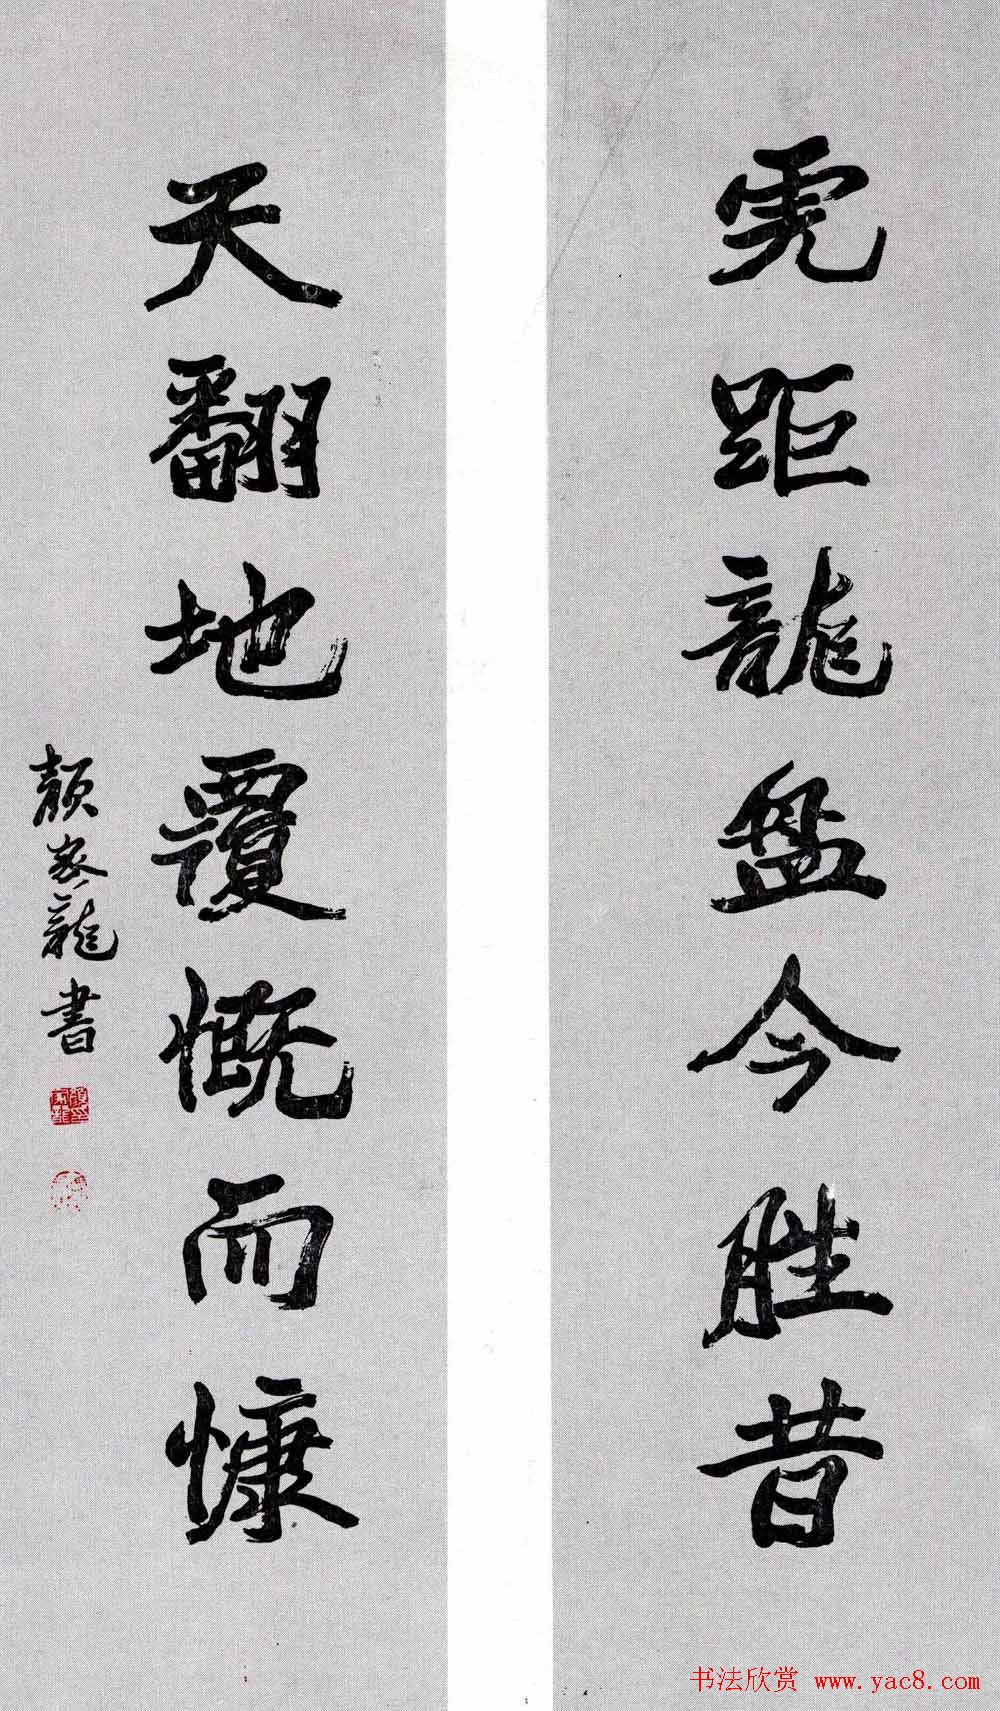 虎距龍盘今胜昔
天翻地覆慨而慷
顏家龍書
书法欣赏 www.yac8.com